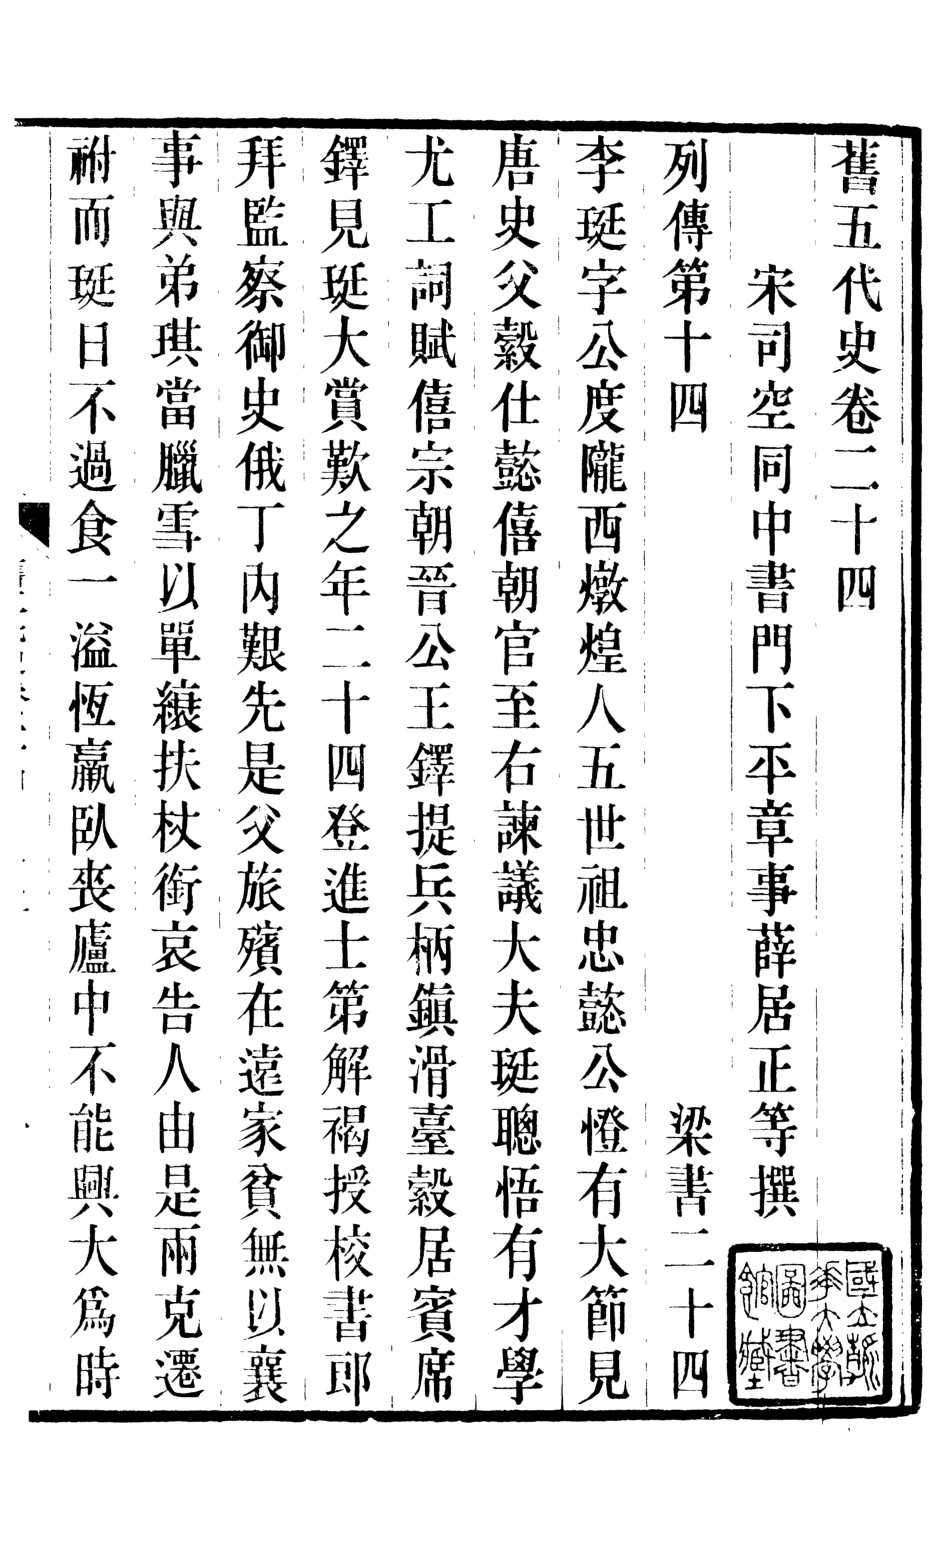 舊五代史卷二十四
宋司空同中書門下平章事薛居正等撰
列傳第十四 梁書二十四
李珽字公度隴西燉煌人五世祖忠懿公憕有大節見
唐史父縠仕懿僖朝官至右諫議大夫珽聰悟有才學
尤工詞賦僖宗朝晉公王鐸提兵柄鎮滑臺縠居賓席
鐸見珽大賞歎之年二十四登進士第解褐授校書郎
拜監察御史俄丁內艱先是父旅殯在遠家貧無以襄
事與弟琪當臘雪以單縗扶杖銜哀告人由是兩克遷
祔而珽日不過食一溢恆羸臥喪廬中不能興大爲時
國立清華大學圖書館藏